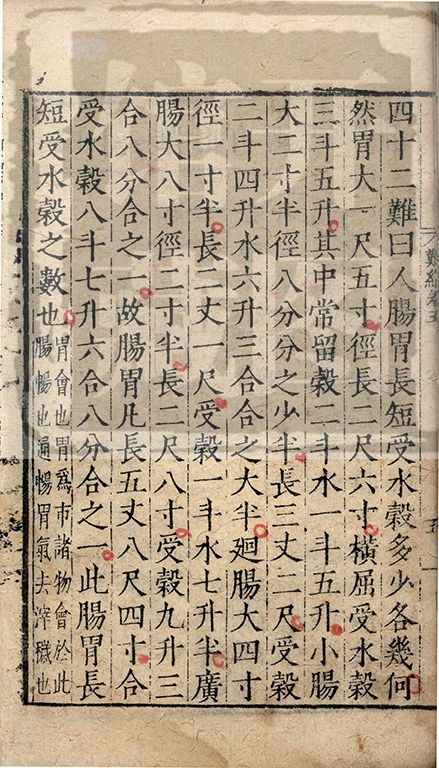 四十二難曰人腸胃長短受水穀多少各幾何
然胃大一尺五寸徑長二尺六寸橫屈受水穀
三斗五升其中常留穀二斗水一斗五升小腸
大二寸半徑八分分之少半長三丈二尺受穀
二斗四升水六升三合合之大半廻腸大四寸
徑一寸半長二丈一尺受穀一斗水七升半廣
腸大八寸徑二寸半長二尺八寸受穀九升三
合八分合之一故腸胃凡長五丈八尺四寸合
受水穀八斗七升六合八分合之一此腸胃長
短受水穀之數也
胃會也胃爲市諸物會於此
腸暢也通暢胃氣去滓穢也
難經卷五